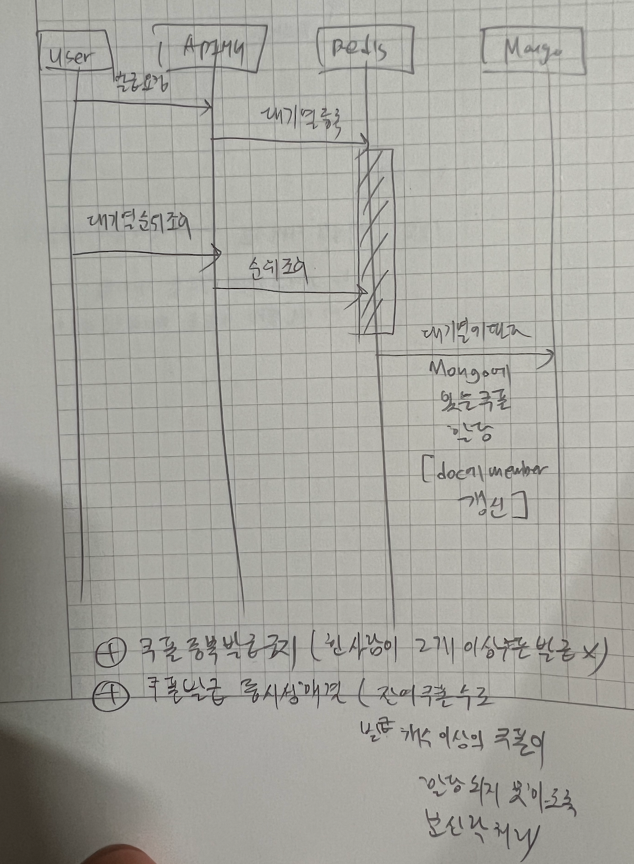 User
Redis
Mongo
발급요청
대기열등록
대기열순위조회
순위조회
대기열이
Mongo에
있는쿠폰
할당
[doc에 member
갱신]
⊕ 쿠폰 중복발급금지 (한사람이 2개 이상쿠폰 발급 x)
⊕ 쿠폰발급 동시성해결 (잔여쿠폰 수로
발급 개수 이상의 쿠폰이
할당 되지 못하도록
분산락 처리)